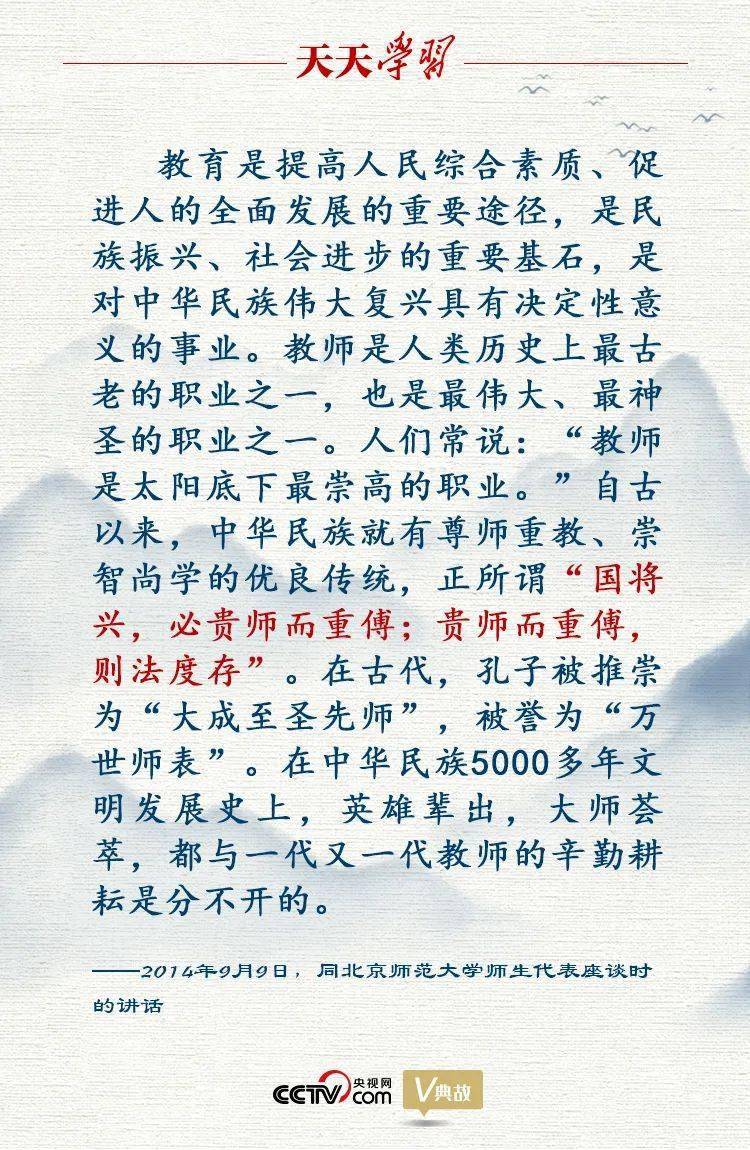 天天學習
教育是提高人民综合素质、促
进人的全面发展的重要途径，是民
族振兴、社会进步的重要基石，是
对中华民族伟大复兴具有决定性意
义的事业。教师是人类历史上最古
老的职业之一，也是最伟大、最神
圣的职业之一。人们常说：“教师
是太阳底下最崇高的职业。”自古
以来，中华民族就有尊师重教、崇
智尚学的优良传统，正所谓“国将
兴，必贵师而重傅；贵师而重傅，
则法度存”。在古代，孔子被推崇
为“大成至圣先师”，被誉为“万
世师表”。在中华民族5000多年文
明发展史上，英雄辈出，大师荟
萃，都与一代又一代教师的辛勤耕
耘是分不开的。
——2014年9月9日，同北京师范大学师生代表座谈时
的讲话
CCTV.com 央视网 V典故